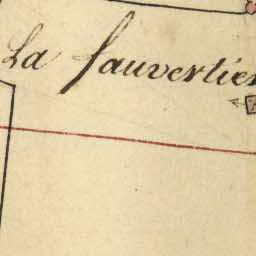 La Sauvertier